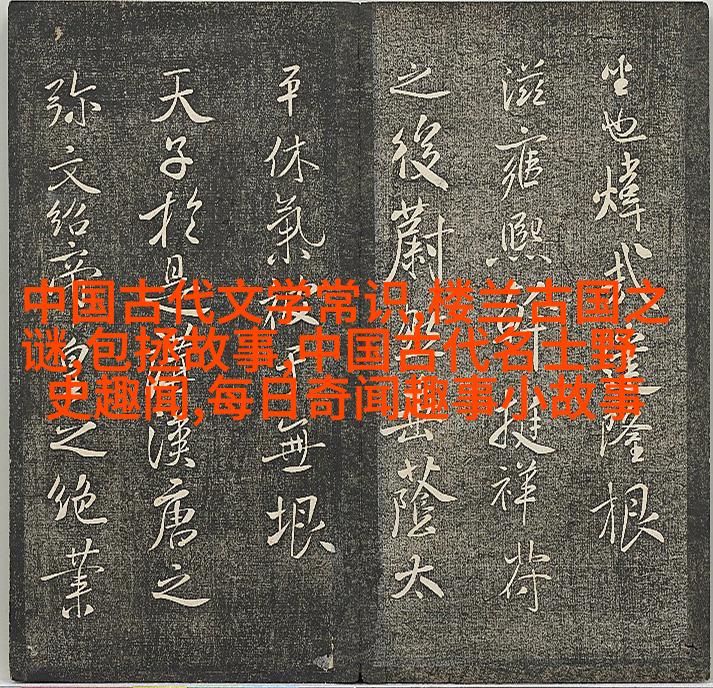 中国古代文学常识,楼兰古国之
谜,包拯故事,中国古代名士野
史趣闻,每日奇闻趣事小故事
也煒哉隆根
滋雍熙挺祥符
之後蔚蔭太
平休氣被于無垠
天子於是漢唐之
弥文紹帝皇之絶業